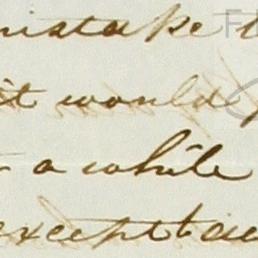 mistake
it would
a while
except